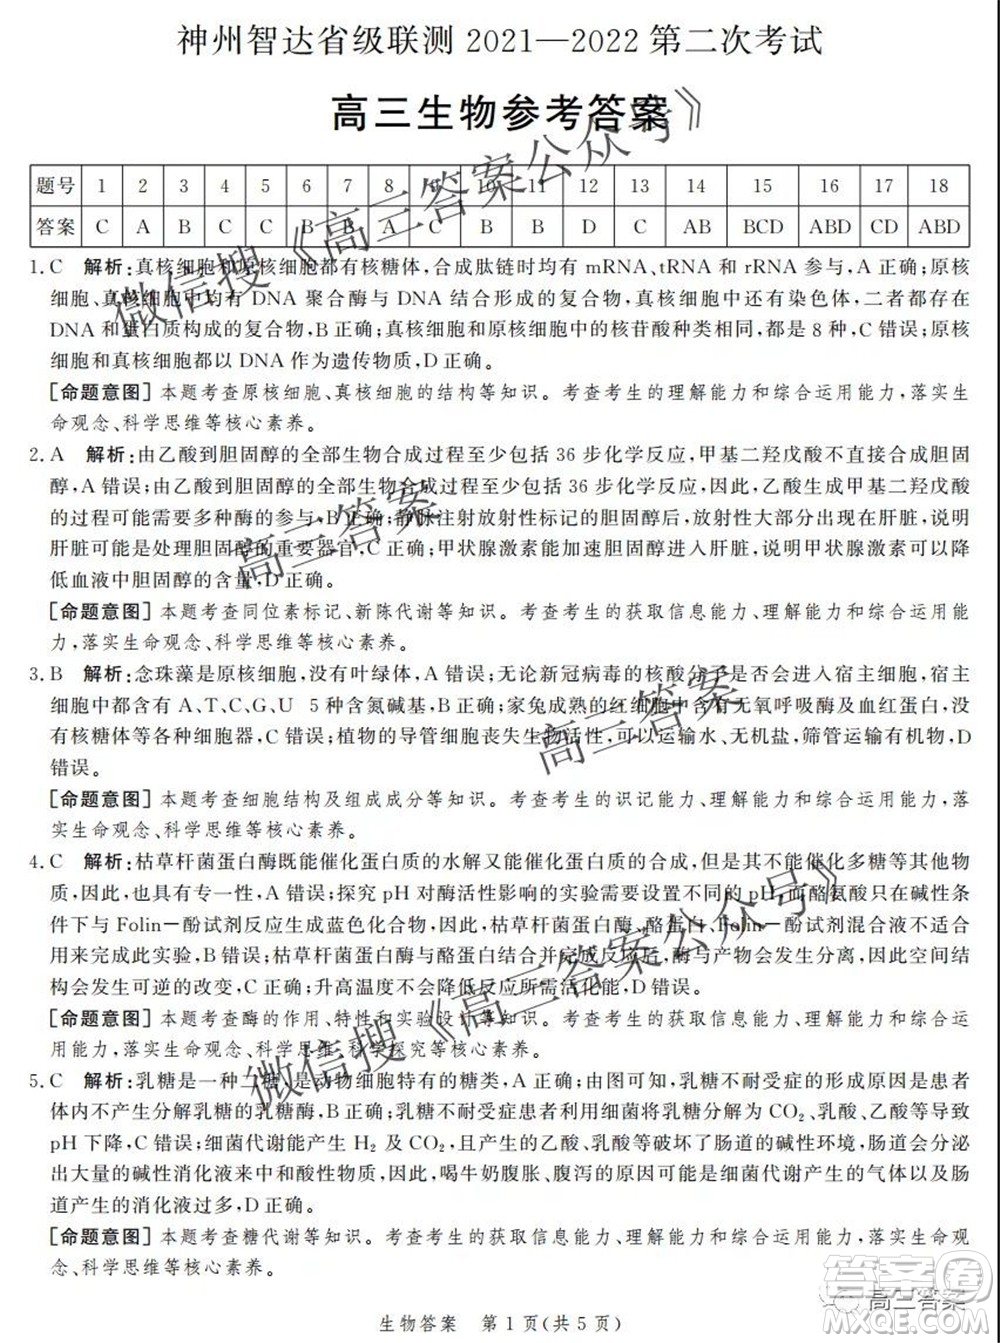 神州智达省级联测 2021—2022 第二次考试
高三生物参考答案
题号 1 2 3 4 5 6 7 8 9 10 11 12 13 14 15 16 17 18
答案 C A B C C B B A C B B D C AB BCD ABD CD ABD
1. C 解析:真核细胞和原核细胞都有核糖体,合成肽链时均有 mRNA、tRNA 和 rRNA 参与,A 正确;原核
细胞、真核细胞中均有 DNA 聚合酶与 DNA 结合形成的复合物,真核细胞中还有染色体,二者都存在
DNA 和蛋白质构成的复合物,B 正确;真核细胞和原核细胞中的核苷酸种类相同,都是 8 种,C 错误;原核
细胞和真核细胞都以 DNA 作为遗传物质,D 正确。
[命题意图] 本题考查原核细胞、真核细胞的结构等知识。考查考生的理解能力和综合运用能力,落实生
命观念、科学思维等核心素养。
2. A 解析:由乙酸到胆固醇的全部生物合成过程至少包括 36 步化学反应,甲基二羟戊酸不直接合成胆固
醇,A 错误;由乙酸到胆固醇的全部生物合成过程至少包括 36 步化学反应,因此,乙酸生成甲基二羟戊酸
的过程可能需要多种酶的参与,B 正确;静脉注射放射性标记的胆固醇后,放射性大部分出现在肝脏,说明
肝脏可能是处理胆固醇的重要器官,C 正确;甲状腺激素能加速胆固醇进入肝脏,说明甲状腺激素可以降
低血液中胆固醇的含量,D 正确。
[命题意图] 本题考查同位素标记、新陈代谢等知识。考查考生的获取信息能力、理解能力和综合运用能
力,落实生命观念、科学思维等核心素养。
3. B 解析:念珠藻是原核细胞,没有叶绿体,A 错误;无论新冠病毒的核酸分子是否会进入宿主细胞,宿主
细胞中都含有 A、T、C、G、U 5 种含氮碱基,B 正确;家兔成熟的红细胞中含有无氧呼吸酶及血红蛋白,没
有核糖体等各种细胞器,C 错误;植物的导管细胞丧失生物活性,可以运输水、无机盐,筛管运输有机物,D
错误。
[命题意图] 本题考查细胞结构及组成成分等知识。考查考生的识记能力、理解能力和综合运用能力,落
实生命观念、科学思维等核心素养。
4. C 解析:枯草杆菌蛋白酶既能催化蛋白质的水解又能催化蛋白质的合成,但是不能催化多糖等其他物
质,因此,具有专一性,A 错误;探究 pH 对酶活性影响的实验需要设置不同的 pH,而酪氨酸只在碱性条
件下与 Folin—酚试剂反应生成蓝色化合物。枯草杆菌蛋白酶、酪蛋白、Folin—酚试剂混合液不可直接
用来完成此实验,B 错误;枯草杆菌蛋白酶与产物或底物(酪蛋白)结合并完成反应的过程中,空间结
构会发生可逆的改变,C 正确;升高温度不会降低反应所需活化能,D 错误。
[命题意图] 本题考查酶的作用、特性和实验设计等知识。考查考生的获取信息能力、理解能力和综合运
用能力,落实生命观念、科学思维、科学探究等核心素养。
5. C 解析:乳糖是一种二糖,是动物细胞特有的糖类,A 正确;由图可知,乳糖不耐受症的形成原因是患者
体内缺少分解乳糖的乳糖酶,B 正确;乳糖不耐受症患者体内,细菌将乳糖分解为 CO₂、乳酸、乙酸等导致
pH 下降,C 错误;细菌代谢能产生 H₂ 及 CO₂,且产生的乙酸、乳酸等破坏了肠道的碱性环境,肠道会分泌
出大量的碱性消化液来中和这些酸性物质,因此,喝牛奶腹胀、腹泻的原因是细菌代谢产生的气体以及肠
道产生的消化液过多,D 正确。
[命题意图] 本题考查糖代谢等知识。考查考生的获取信息能力、理解能力和综合运用能力,落实生命观
念、科学思维等核心素养。
生物答案 第 1 页(共 5 页)
微信搜《高三答案公众号》
高三答案
高三答案
微信搜《高三答案公众号》
高三答案
答案圈
MXQE.COM